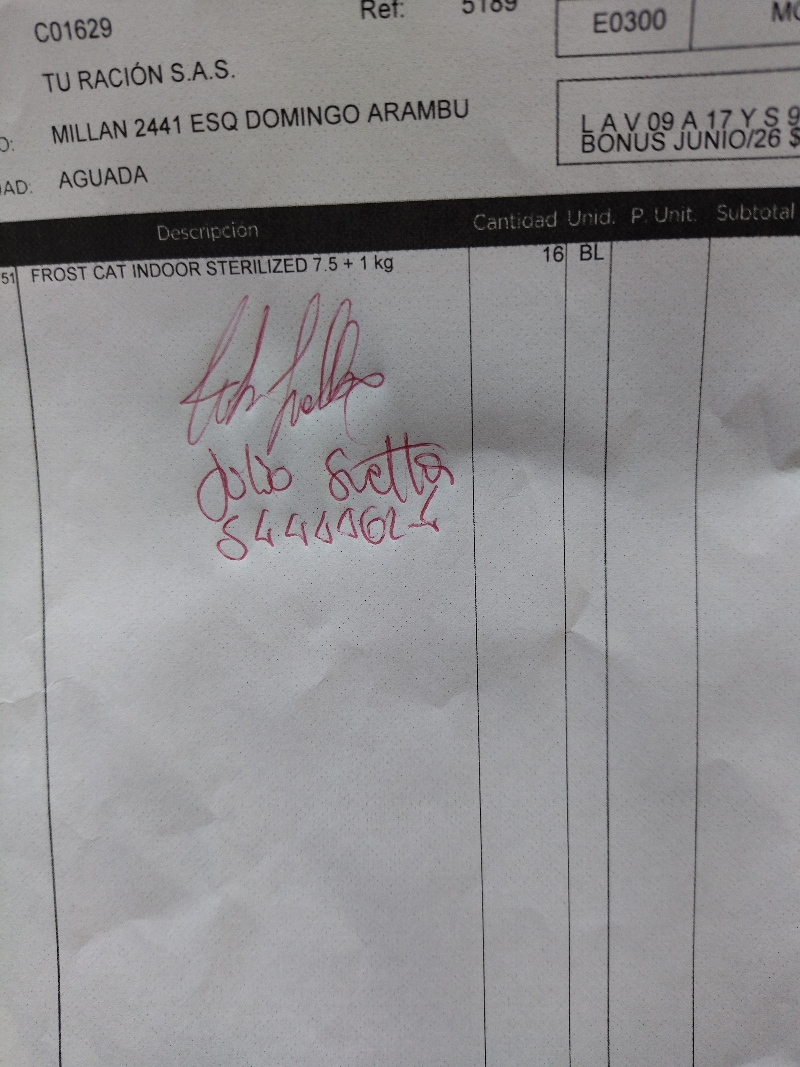 C01629
Ref: 5189
E0300
TU RACIÓN S.A.S.
MILLAN 2441 ESQ DOMINGO ARAMBU
L A V 09 A 17 Y S 9
BONUS JUNIO/26 $
AGUADA
Descripción Cantidad Unid. P. Unit. Subtotal
51 FROST CAT INDOOR STERILIZED 7.5 + 1 kg 16 BL
Julio